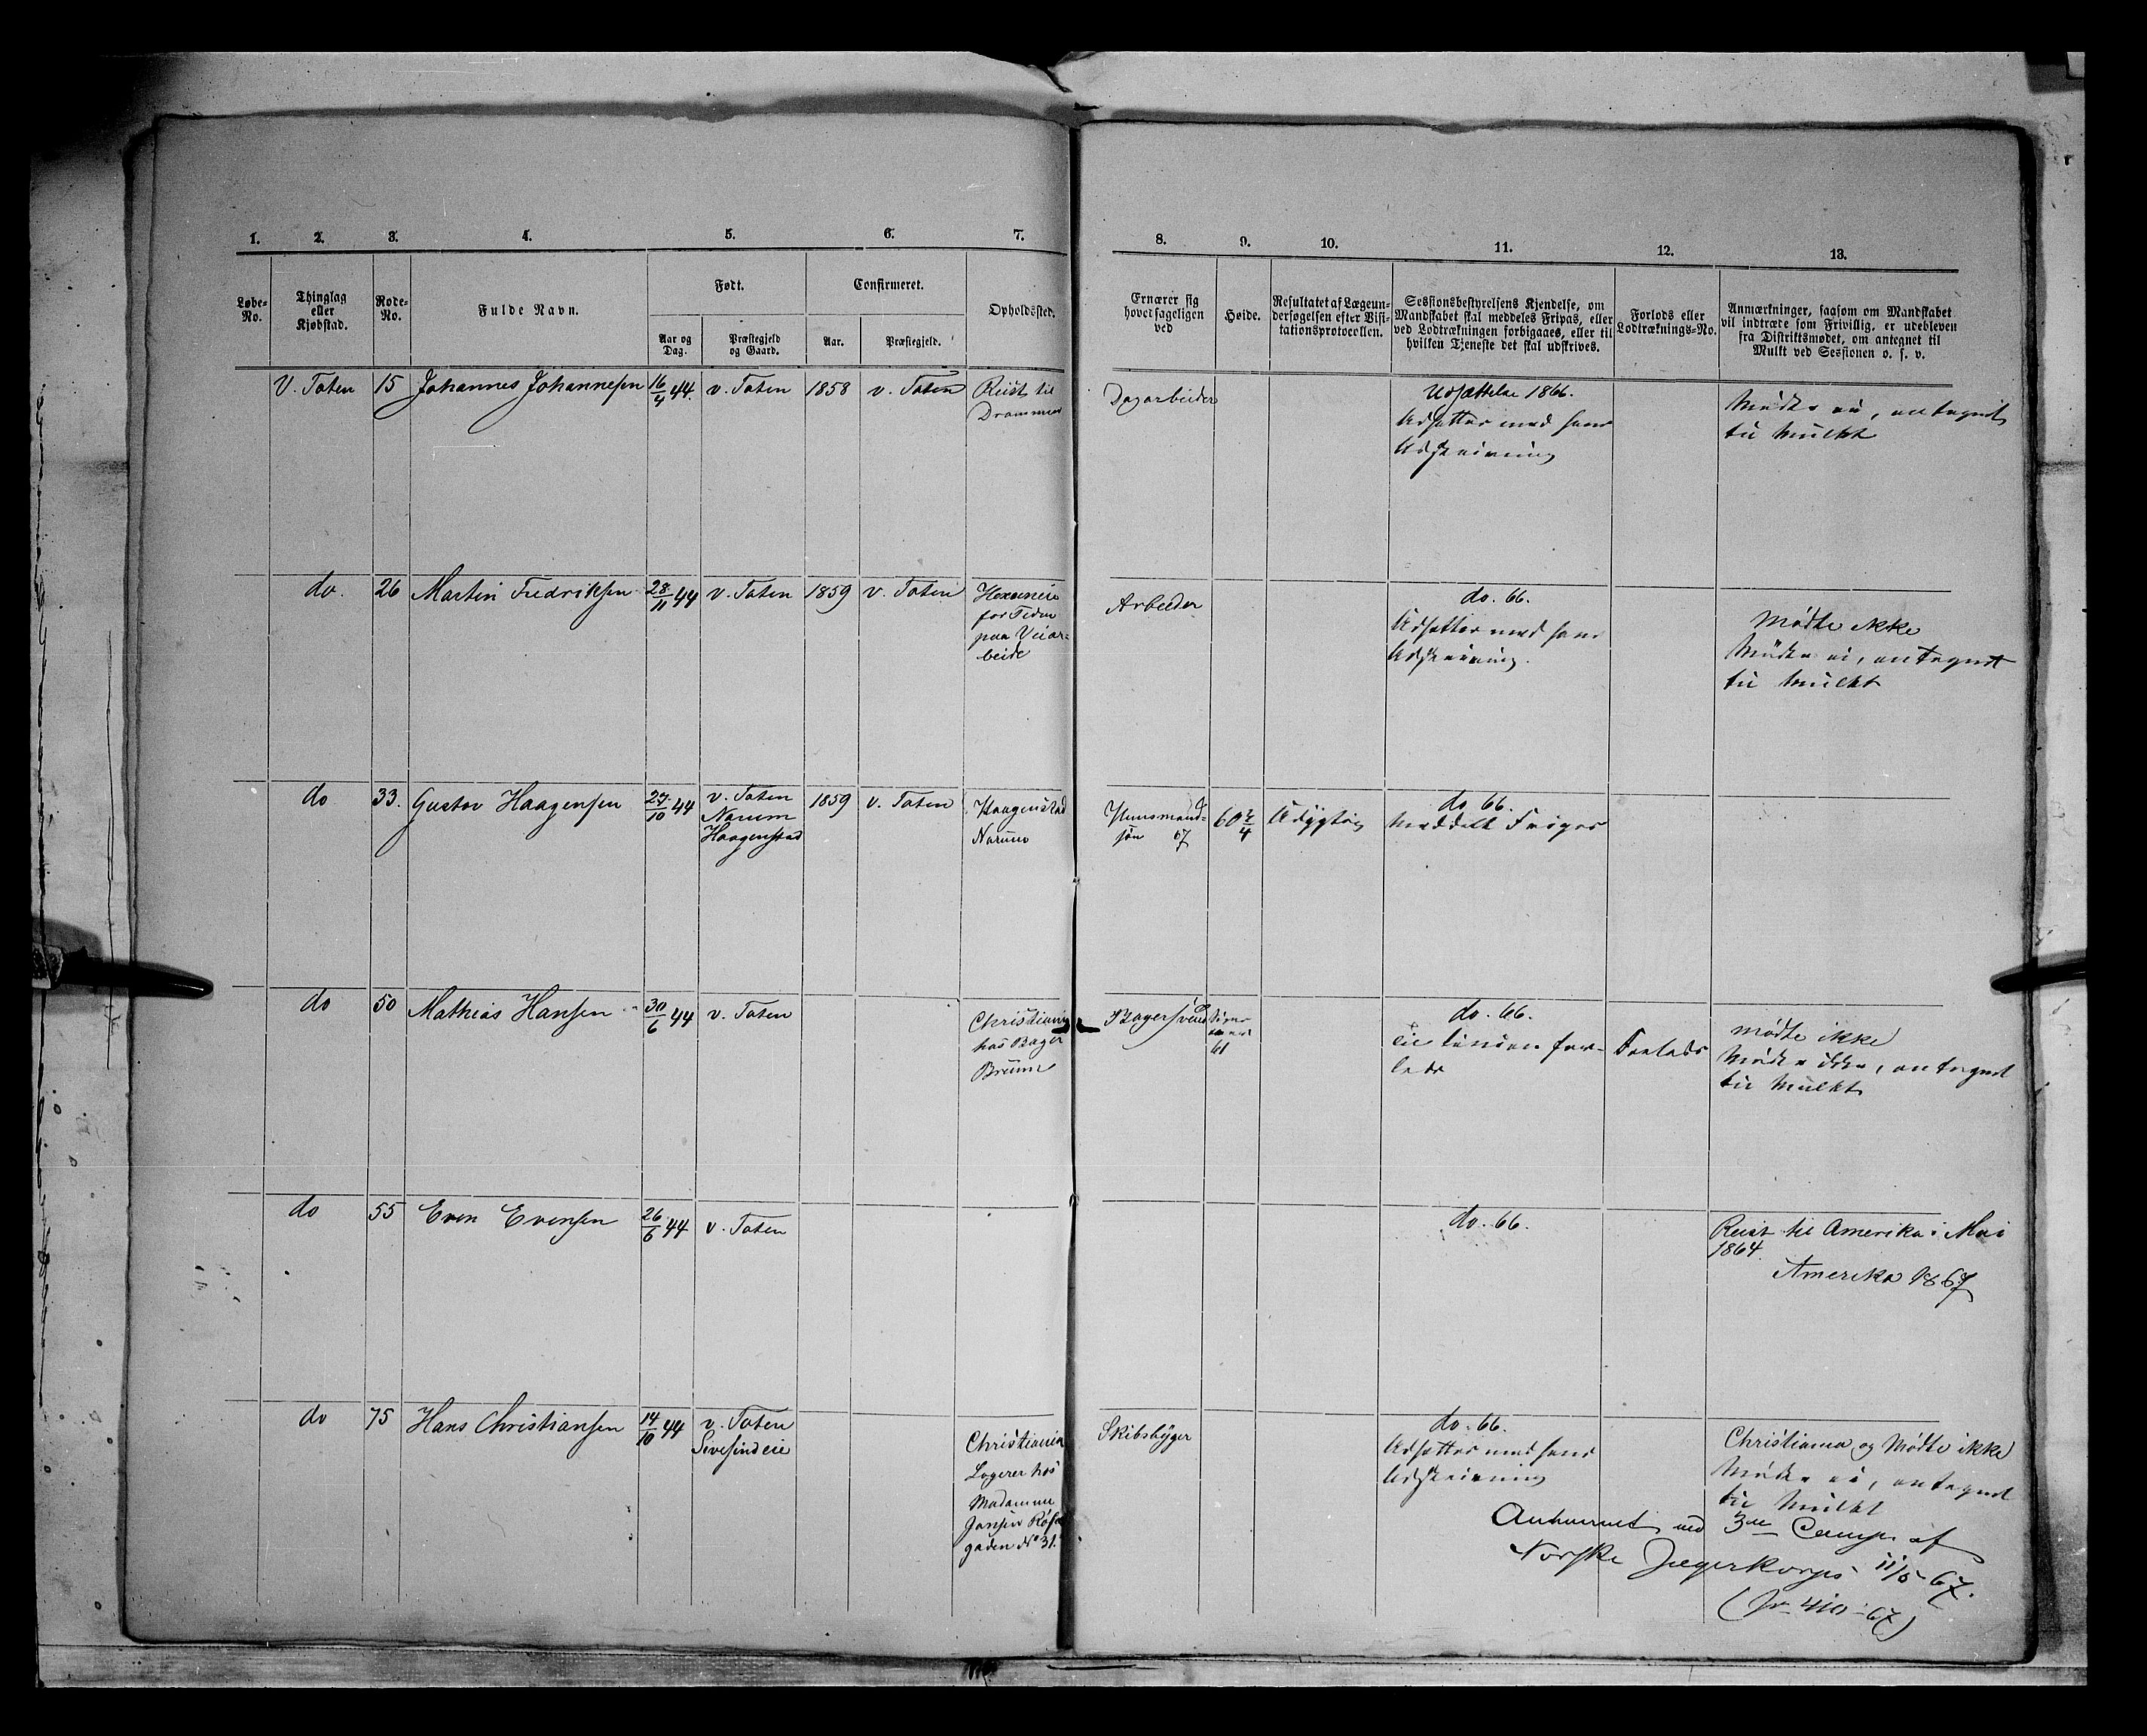 1. 2. 3. 4. 5. 6. 7.
Løbe-No.
Thinglag eller Kjøbstad.
Rode-No.
Fulde Navn.
Født.
Aar og Dag.
Præstegjeld og Gaard.
Confirmeret.
Aar.
Præstegjeld.
Opholdssted.
8. 9. 10. 11. 12. 13.
Ernærer sig
hovedsageligen
ved
Høide.
Resultatet af Lægeun-
dersøgelsen efter Visi-
tationsprotocollen.
Sessionsbestyrelsens Kjendelse, om
Mandskabet skal meddeles Fripas, eller
ved Lodtrækningen forbigaaes, eller til
hvilken Tjeneste det skal udskrives.
Forlods eller
Lodtræknings-No.
Anmærkninger, saasom om Mandskabet
vil indtræde som Frivillig, er udebleven
fra Distriktsmødet, om antegnet til
Mulkt ved Sessionen o. s. v.
V. Toten 15 Johannes Johannesen 16/4 44. v. Toten 1858 v. Toten
Reist til
Drammen
Dagarbeider
Udsættelse 1866.
Udsættes med hans
Udskrivning
Mødte ei, antegnet
til Mulkt
do. 26 Martin Fredriksen 28/11 44 v. Toten 1859 v. Toten
for Tiden
paa Veiar-
beide
Arbeider
do. 66.
Udsættes med hans
Udskrivning.
Mødte ikke
Mødte ei, antegnet
til Mulkt
do 33. Gustav Haagensen 27/10 44
v. Toten
Narum
Haagenstad
1859 v. Toten
Haagenstad
Narum
Huusmands-
søn 67
60 2/4
Udygtig
do 66.
Meddelt Fripas
do 50 Mathias Hansen 30/6 44 v. Toten
Christiania
hos Bager
Bruun
Bagersvend
61
do. 66.
Til Linien for-
lods
Forlods
Mødte ikke
Mødte ikke, antegnet
til Mulkt
do 55 Even Evensen 26/6 44 v. Toten
do. 66.
Reist til Amerika i Mai
1864.
Amerika 1867
do 75 Hans Christiansen 14/10 44
v. Toten
Sivesindeie
Christiania
Logerer hos
Madamme
Jansen
gaden No 31.
Skibsbyger
do. 66.
Udsættes med hans
Udskrivning
Christiania og Mødte ikke
Mødte ei, antegnet
til Mulkt
Antaget ved 3die Comp. af
Norske Jægerkorps 11/5 67.
(Jr 410-67)